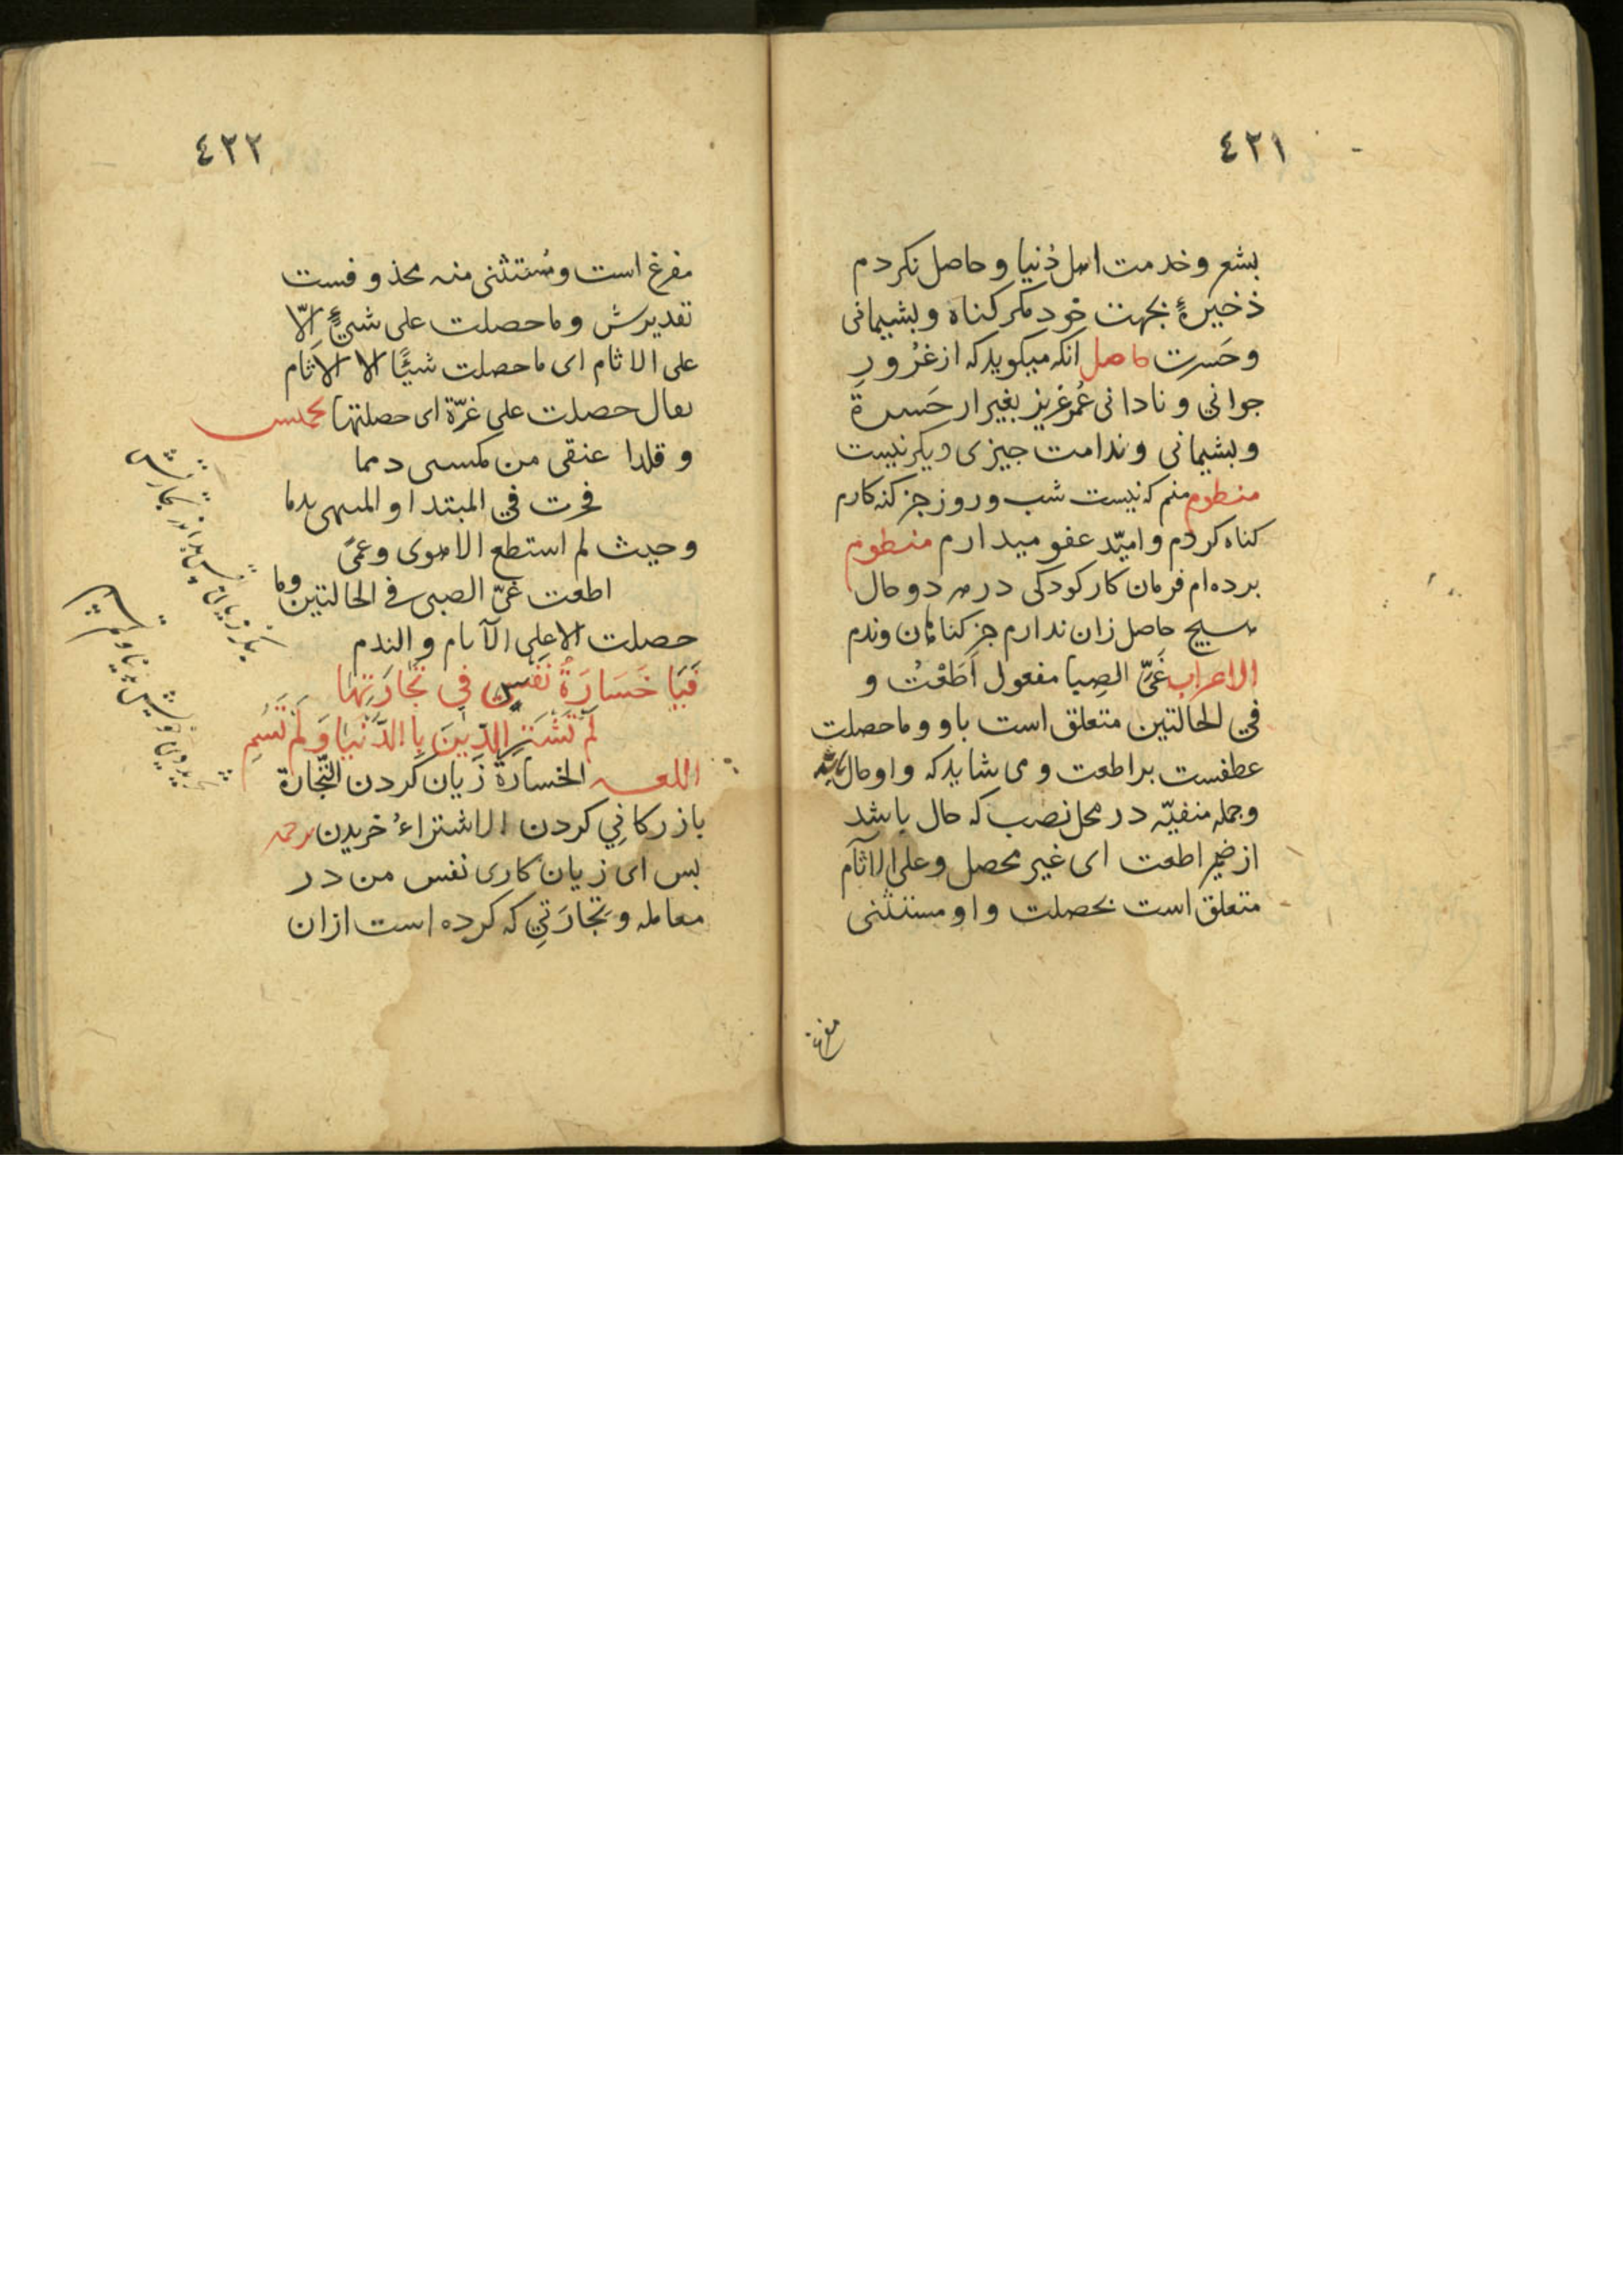 ٤٢١
بشعر وخدمت اهل دُنیا و حاصل نکردم
ذخیرهٔ بجهت خود مکر کناه و بشیمانی
وحَسرت حاصل انکه میکوید که از غرُورِ
جوانی و نادانی عُمر عزیز بغیر از حَسرة
وبشیمانی وندامت جیزی دیکر نیست
منظوم منم که نیست شب و روز جز کنه کارم
کناه کردم و امیّد عفو میدارم منظوم
برده ام فرمان کار کودکی در هر دو حال
هیچ حاصل زان ندارم جز کناهان وندم
الاعراب غَیَّ الصِبا مفعول اَطَعْتُ و
في الحالتین متعلق است باو وماحصلت
عطفست بر اطعت و می شاید که واو حال باشد
وجمله منفیّه در محل نصب که حال باشد
از ضمیر اطعت ای غیر محصل وعلی الآثام
متعلق است بحصلت واو مستثنی
مفرغ
٤٢٢
مفرغ است ومُستثنی منه محذوفست
تقدیرش وماحصلت علی شیءٍ الّا
علی الاثام ای ماحصلت شیئًا الا الاَثام
یقال حصلت علی غرّة ای حصلتها مخمس
و قلدا عنقی من مکسبی دمما
فخرت في المبتدا و المنتهی بدما
وحیث لم استطع الاهوی وعمیً
اطعت غیّ الصبی في الحالتین وما
حصلت الا علی الآثام و الندم
فَيَا خَسَارَةَ نَفْسٍ فِي تِجَارَتِهَا
لَمْ تَشْتَرِ الدِّينَ بِالدُّنْيَا وَلَمْ تَسُمِ
اللغه الخسارَة زیان کردن التّجارة
بازرکانی کردن الاشتراءُ خریدن ترجمه
بس ای زیان کاری نفس من در
معامله و تجارَتی که کرده است ازان